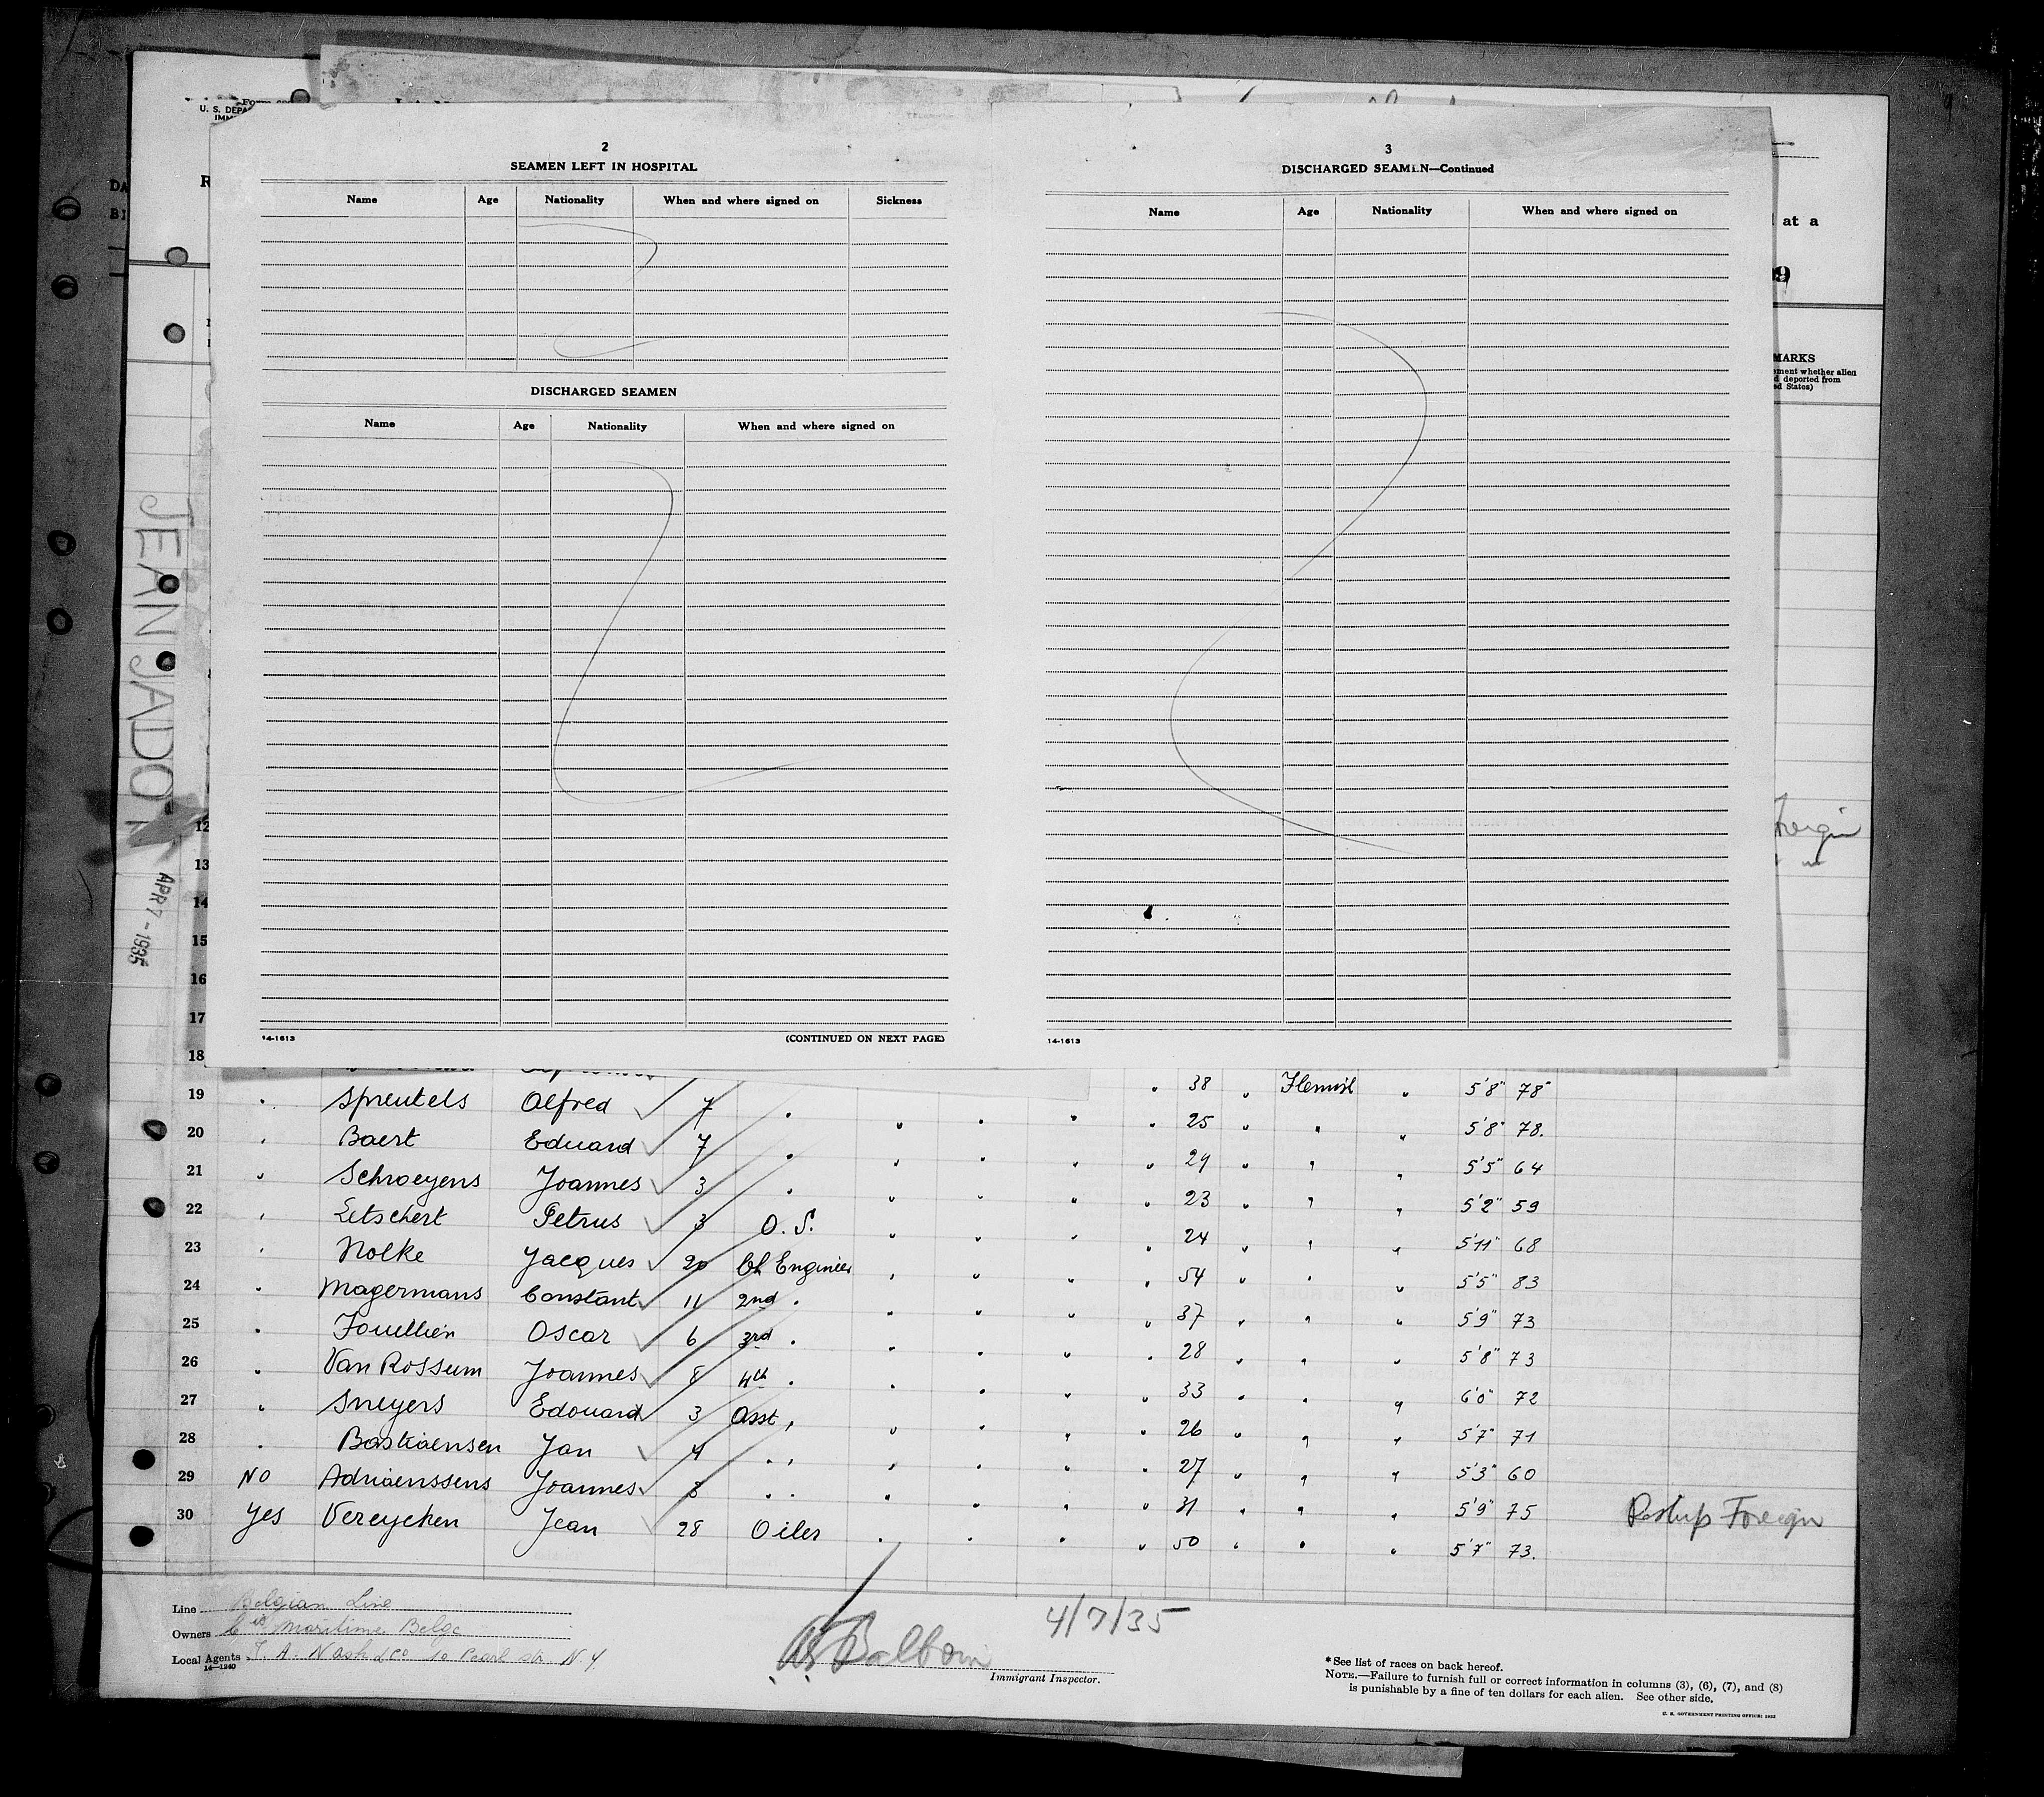 U. S. DEPA
IMM
DA
BI
R
at a
9
MARKS
ment whether alien
d deported from
ed States)
JEAN JADOT
APR 7 - 1935
2
SEAMEN LEFT IN HOSPITAL
Name Age Nationality When and where signed on Sickness
DISCHARGED SEAMEN
Name Age Nationality When and where signed on
14-1613 (CONTINUED ON NEXT PAGE)
3
DISCHARGED SEAMEN—Continued
Name Age Nationality When and where signed on
14-1613
12
13
14
15
16
17
18
38 " Flemish " 5'8" 78"
19 " Spreutels Alfred 7 " " " " " 25 " " " 5'8" 78.
20 " Baert Eduard 7 " " " " " 29 " " " 5'5" 64
21 " Schroeyens Joannes 3 " " " " " 23 " " " 5'2" 59
22 " Letschert Petrus 3 O.S. " " " " 24 " " " 5'11" 68
23 " Nolke Jacques 20 Ch Engineer " " " " 54 " " " 5'5" 83
24 " Magermans Constant 11 2nd " " " " " 37 " " " 5'9" 73
25 " Oscar 6 3rd " " " " " 28 " " " 5'8" 73
26 " Van Rossum Joannes 8 4th " " " " " 33 " " " 6'0" 72
27 " Sneyers Edouard 3 Asst " " " " " 26 " " " 5'7" 71
28 " Bastiaensen Jan 4 " " " " " " 27 " " " 5'3" 60
29 NO Adriaenssens Joannes 8 " " " " " " 31 " " " 5'9" 75
30 Yes Vereycken Jean 28 Oiler " " " " 50 " " " 5'7" 73.
Reship Foreign
Line Belgian Line
Owners Cie Maritime Belge
Local Agents T. A. Nash & Co 10 Pearl str. N.Y.
14—1240
4/7/35
Immigrant Inspector.
* See list of races on back hereof.
NOTE.—Failure to furnish full or correct information in columns (3), (6), (7), and (8)
is punishable by a fine of ten dollars for each alien. See other side.
U. S. GOVERNMENT PRINTING OFFICE: 1932